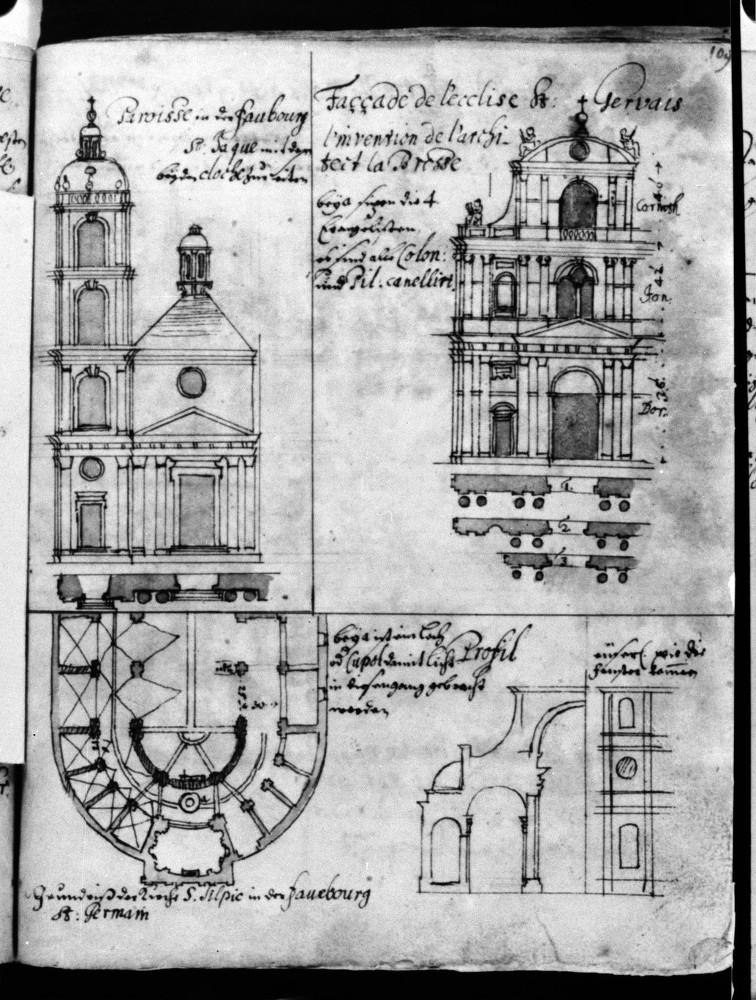 109
Paroisse in der Faubourg
St. Jaque mit den
beyden clocken zu seiten
Façcade de l'ecclise St: Gervais
l'invention de l'archi-
tect la Brosse
bey a sitzen die 4
Evangelisten,
es sind alle Colon:
und Pil. canellirt
46
Corinth
42
Jon.
36
Dor.
1.
2
3
bey a ist ein loch
Cupol damit licht Profil
in diesen gang gebracht
werden
wie die
fenster kommen
30
Grundriß der Kirche S. Silpic in der Fauebourg
St: Germain